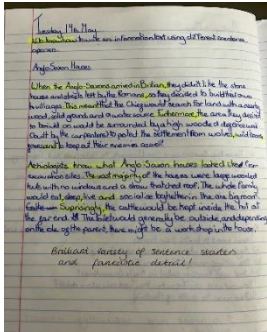 Tuesday 7th May
L.O. to know how to write an information text using different sentence
openers.
Anglo Saxon Houses
When the Anglo-Saxons arrived in Britian, they didn't like the stone
houses and streets left by the Romans, so they decided to build their own
villages. This meant that the Chieg would search the land with a nearby
wood, and a water source. Furthermore, the area they decided
to build on would be surrounded by a high wooden
by the to protect the settlement from wolves, wild boars,
and to keep out their enemies as well.
know what Anglo Saxon houses looked like from
excavation sites. The vast majority of the houses were large wooded
huts with no windows and a straw thatched roof. The whole family
would eat, sleep, live and socialise together in the one big room.
Suprisingly, the cattle would be kept inside the hut at
the far end. The toilet would generally be outside, and depending
on the of the parent, there might be a workshop in the house.
Brilliant variety of sentence starters
and fantastic detail!